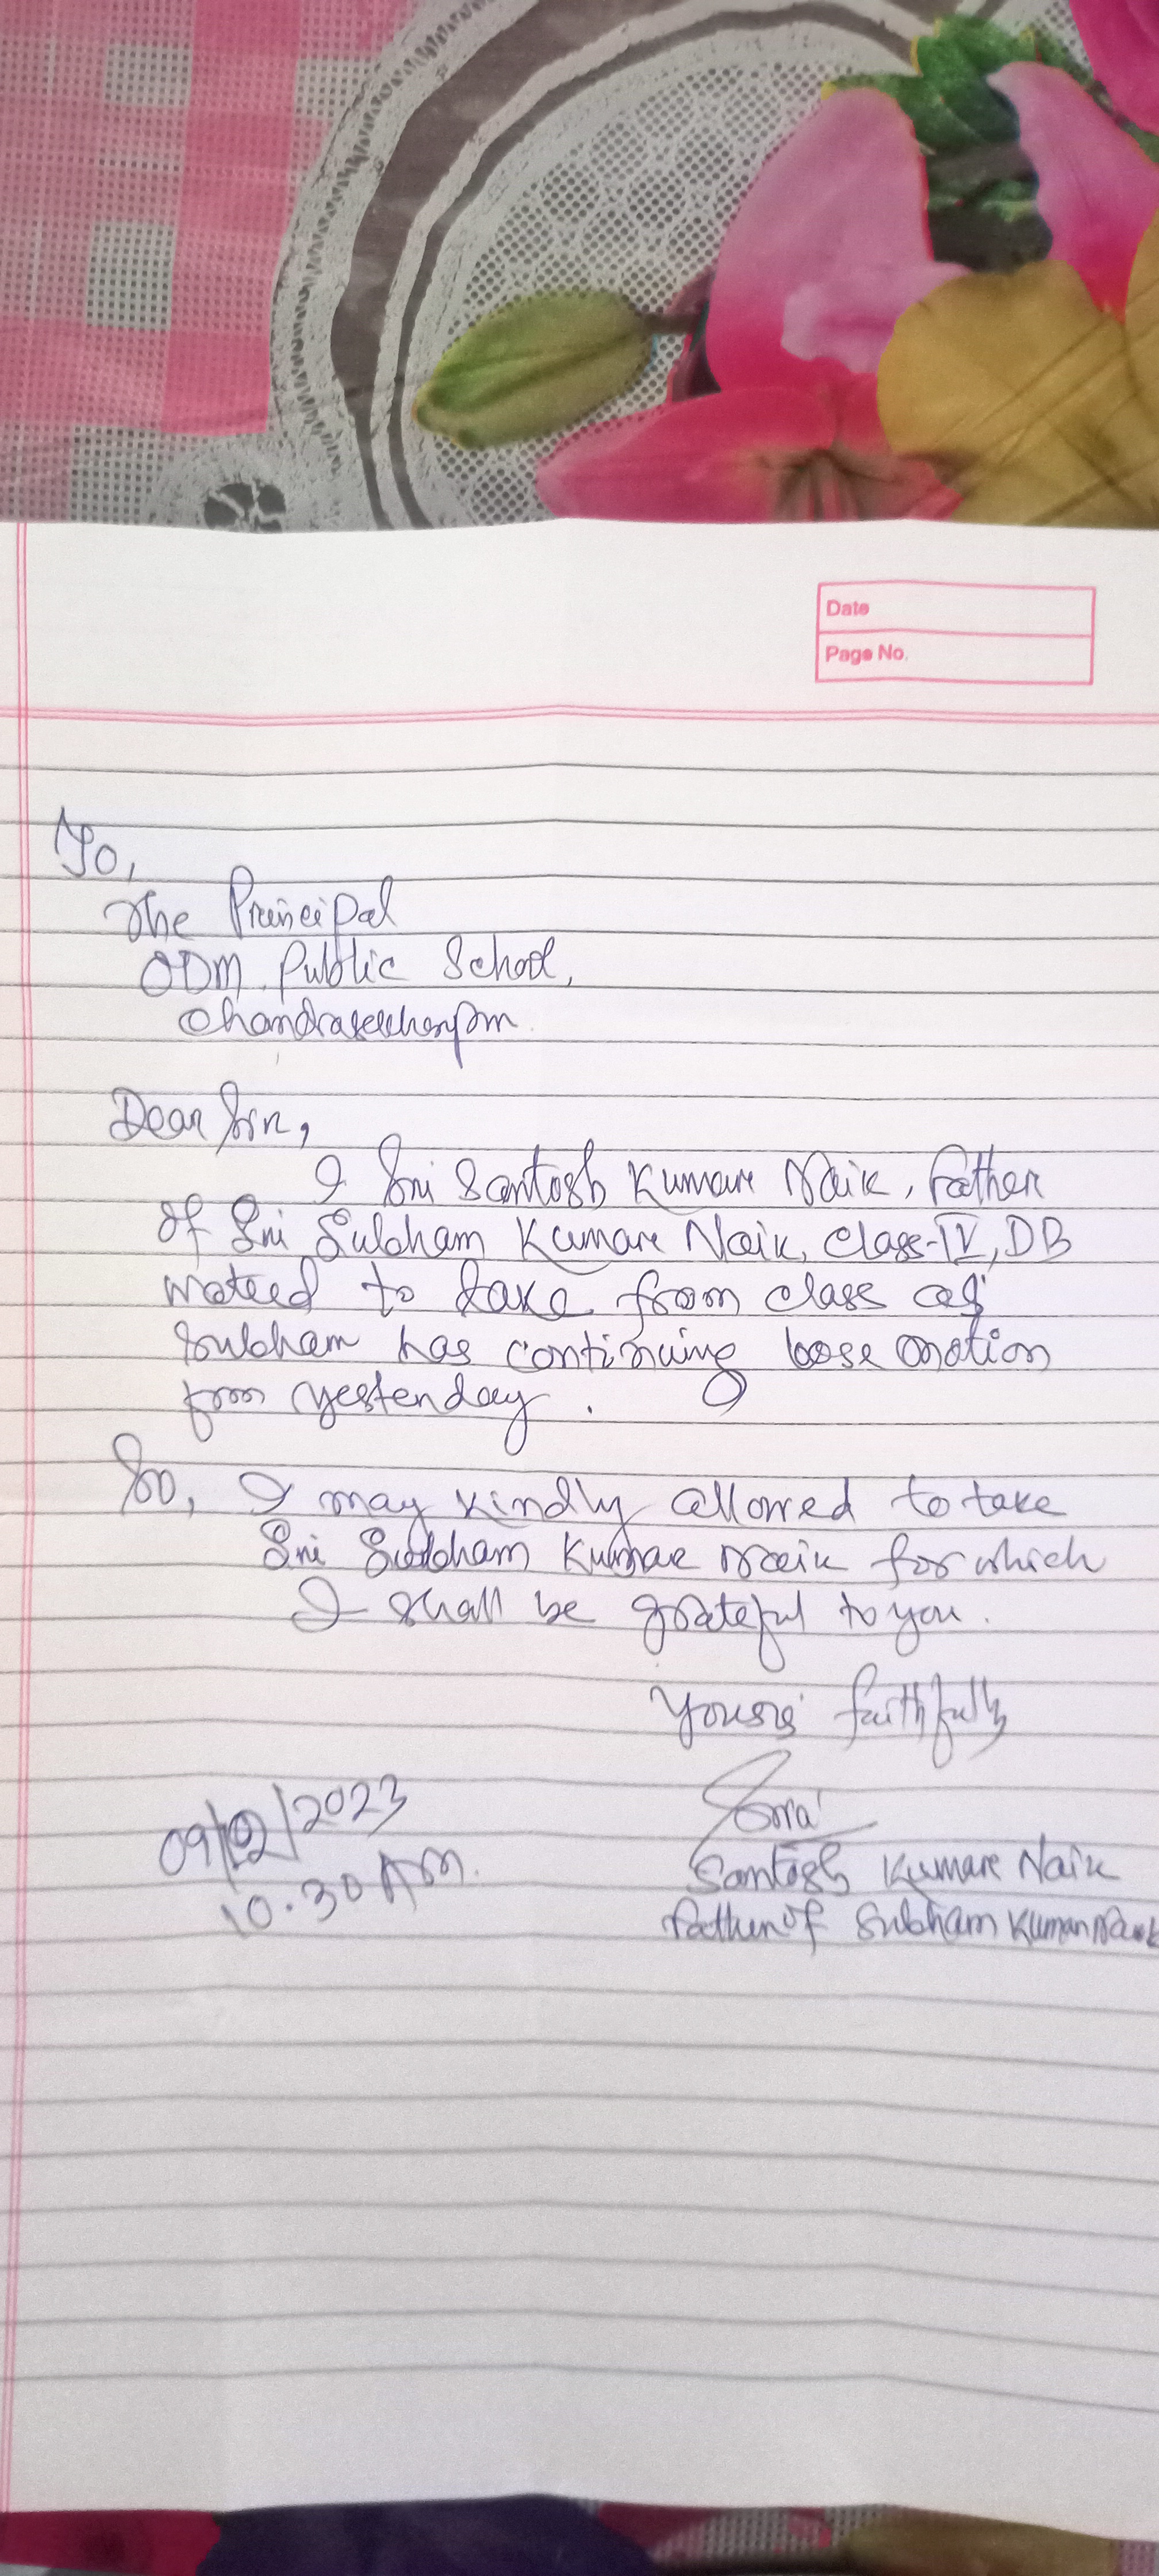 Date
Page No.
To,
The Principal
ODM Public School,
Chandrasekharpur
Dear Sir,
I Sri Santosh Kumar Naik, father
of Sri Subham Kumar Naik, Class-IV, DB
to take from class as
Subham has continuing loose motion
from yesterday.
So, I may kindly allowed to take
Sri Subham Kumar Naik for which
I shall be grateful to you.
Yours faithfully
Santosh Kumar Naik
Father of Subham Kumar Naik
/2023
10.30 AM.